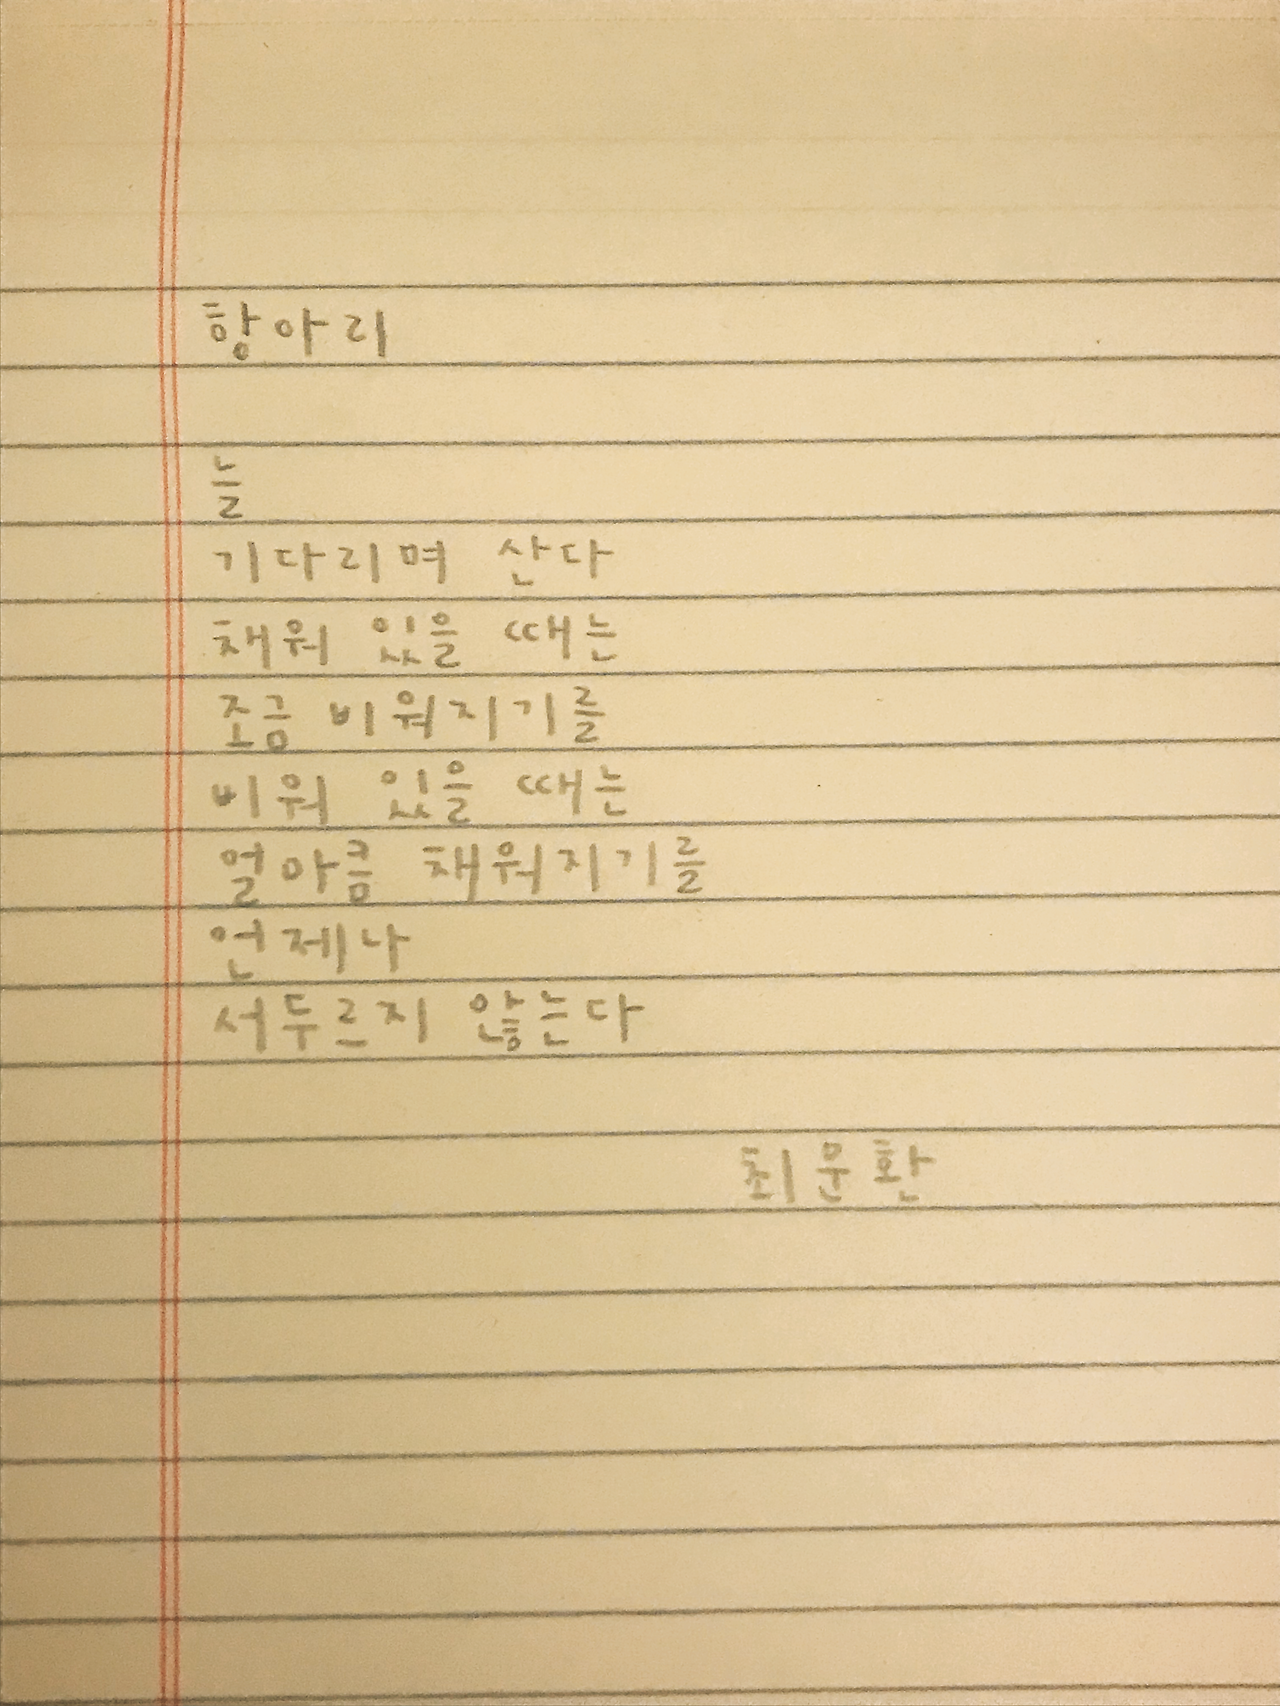 항아리
늘
기다리며 산다
채워 있을 때는
조금 비워지기를
비워 있을 때는
얼아큼 채워지기를
언제나
서두르지 않는다
최운환